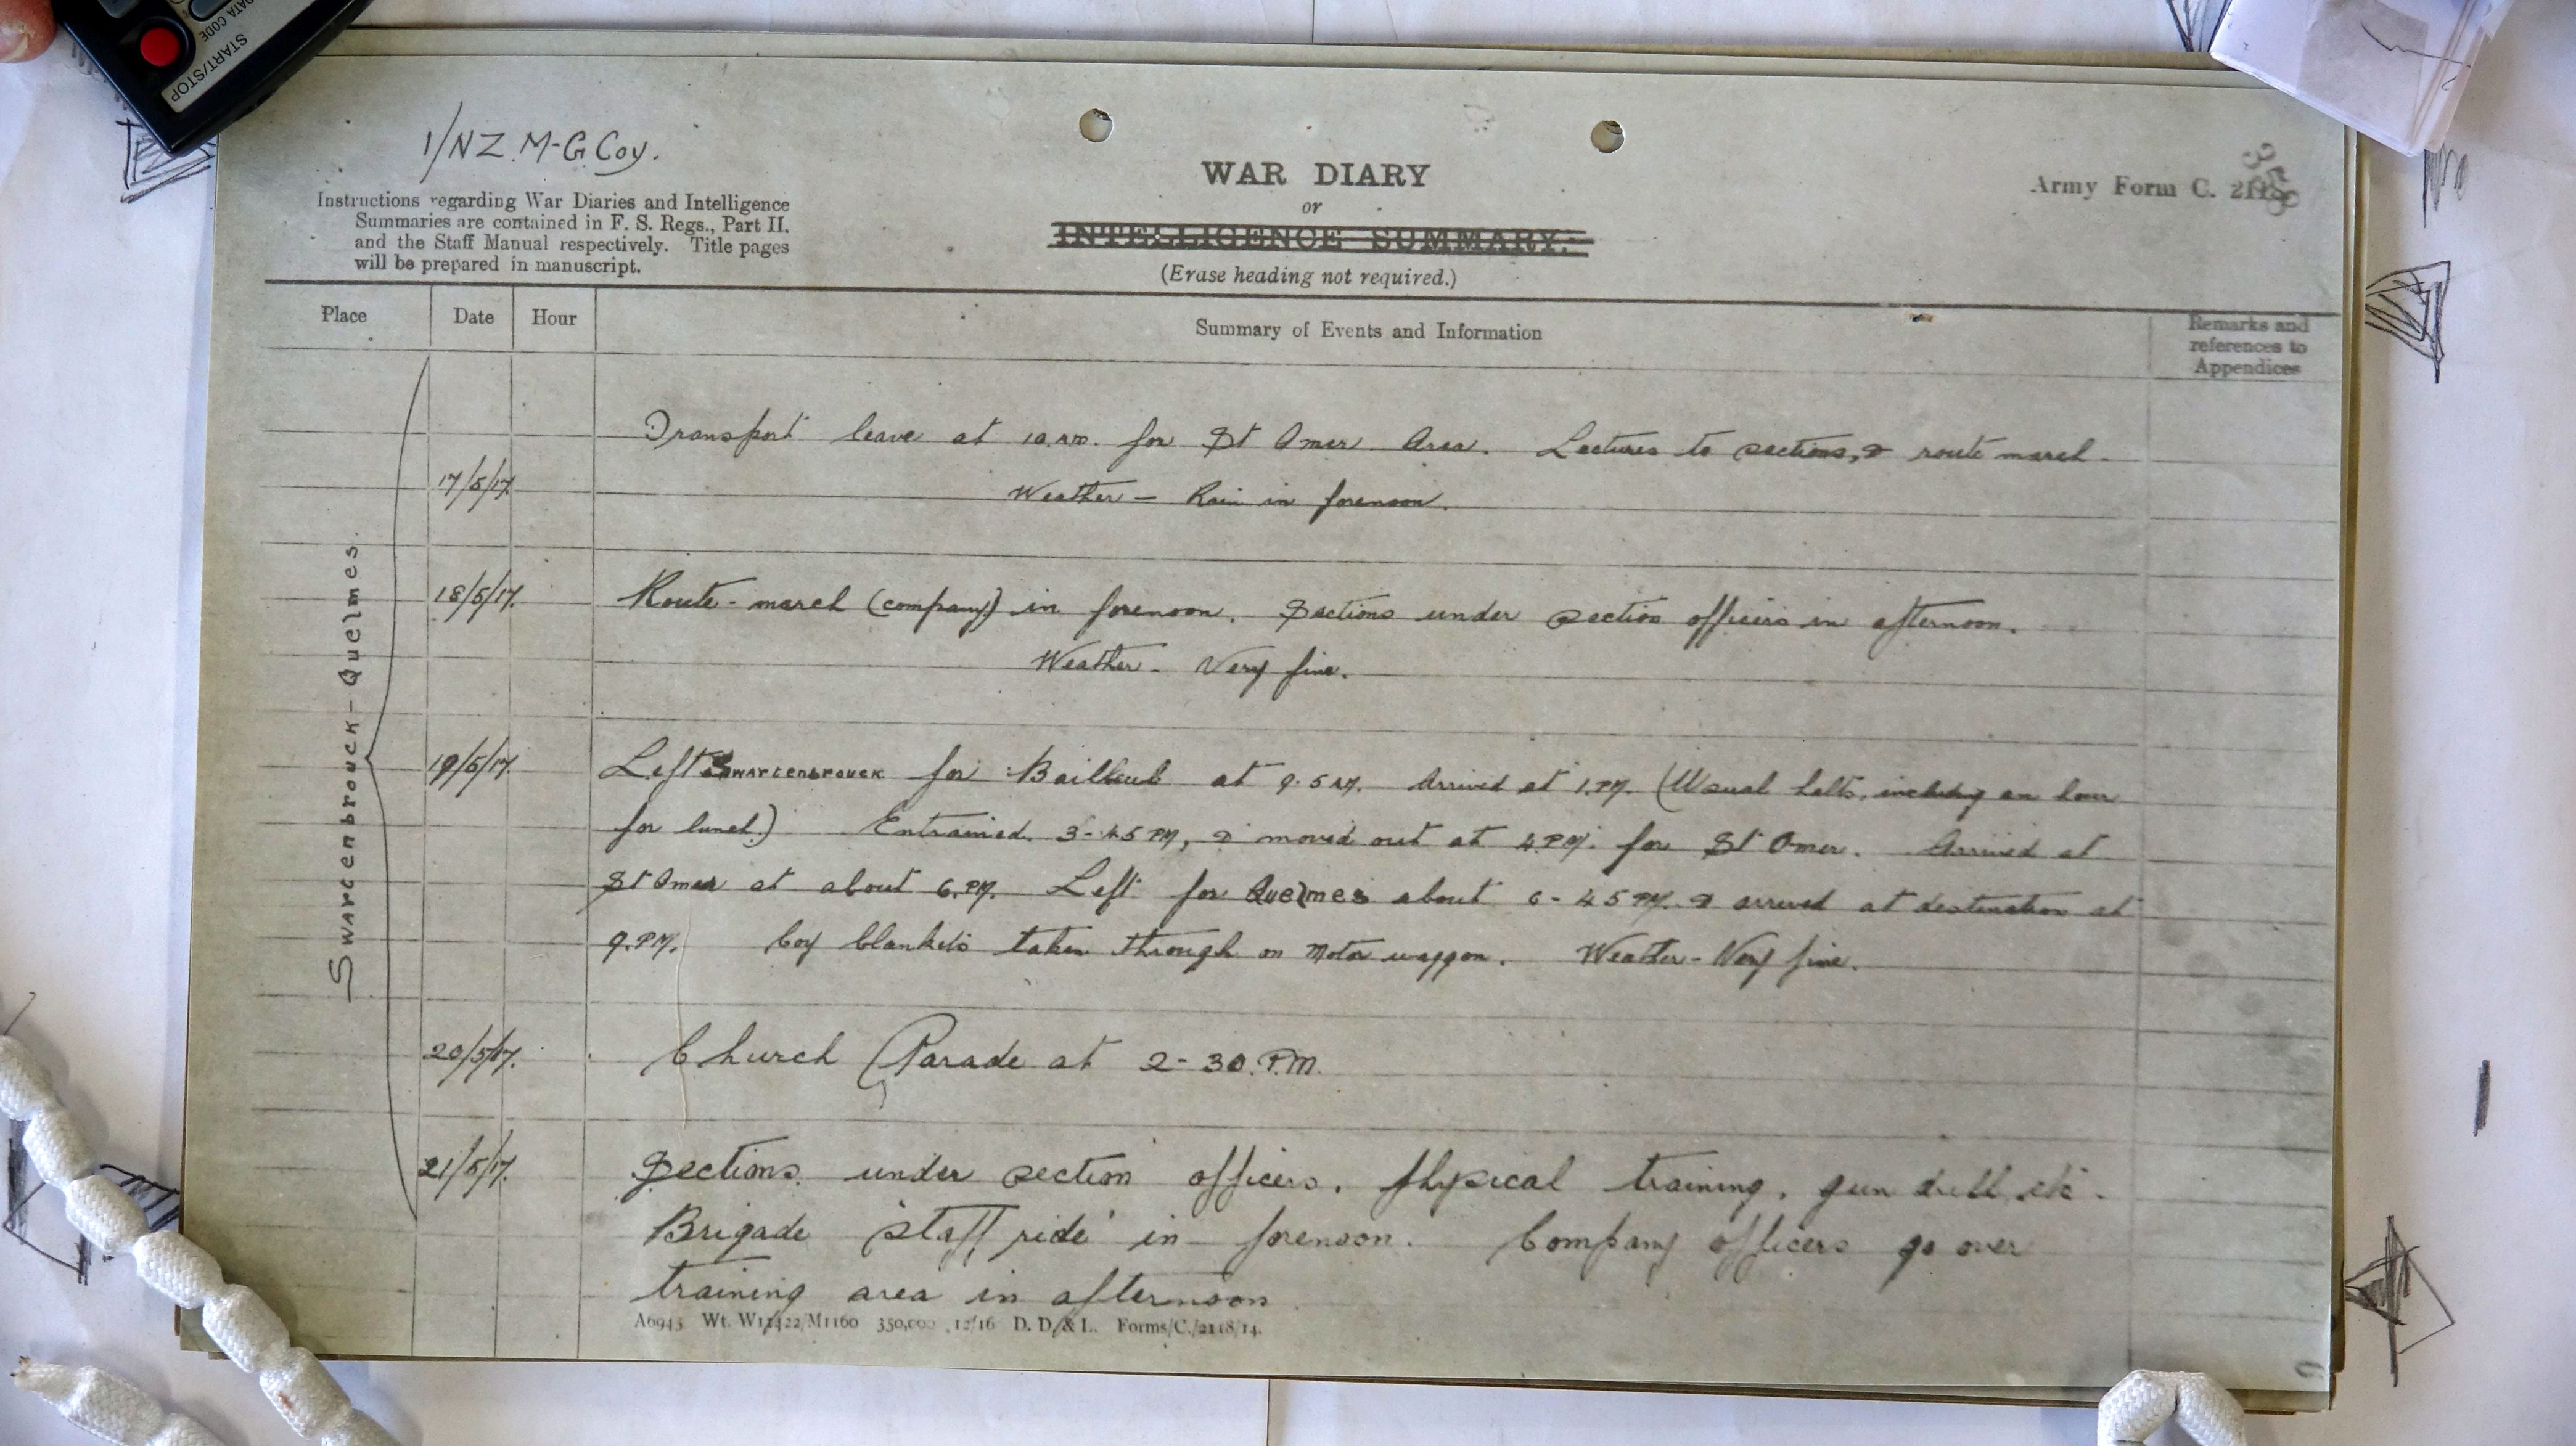 DATA CODE
START/STOP
1/NZ. M-G Coy.
Instructions regarding War Diaries and Intelligence
Summaries are contained in F. S. Regs., Part II.
and the Staff Manual respectively. Title pages
will be prepared in manuscript.
WAR DIARY
or
INTELLIGENCE SUMMARY.
(Erase heading not required.)
Army Form C. 2118
358
Place
Date
Hour
Summary of Events and Information
Remarks and
references to
Appendices
Swarcenbrouck - Quelmes.
17/5/17
Transport leave at 10.AM. for St Omer Area. Lectures to sections, & route march.
Weather - Rain in forenoon.
18/5/17.
Route-march (company) in forenoon. Sections under section officers in afternoon.
Weather - Very fine.
19/5/17.
Left SWARCENBROUCK for Bailleul at 9.5 AM. Arrived at 1.PM. (Usual halts, including an hour
for lunch) Entrained 3-45 PM, & moved out at 4 P.M. for St Omer. Arrived at
St Omer at about 6.PM. Left for Quelmes about 6-45 PM. & arrived at destination at
9.PM. Coy blankets taken through on Motor waggon. Weather - Very fine.
20/5/17.
Church Parade at 2-30.P.M.
21/5/17.
Sections under section officers. Physical training, gun drill etc.
Brigade 'staff ride' in forenoon. Company officers go over
training area in afternoon
A6945 Wt. W11422/M1160 350,000 12/16 D. D. & L. Forms/C./2118/14.